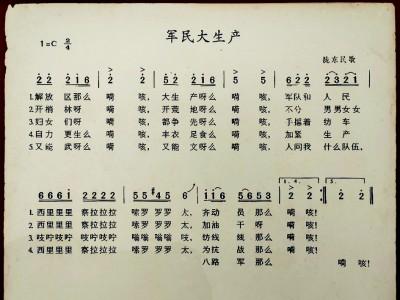 军民大生产
1=C 2/4
陇东民歌
2 2 2 1 6 | 2 2 | 2 2 2 1 6 | 5 5 | 6 2 2 2 1 2 1 6
1.解放 区那么 嗬 咳, 大生 产呀么 嗬 咳, 军队和 人 民
2.开梢 林呀 嗬 咳, 开荒 地呀么 嗬 咳, 不分 男男女女
3.妇女 们呀 嗬 咳, 都争 先呀么 嗬 咳, 手摇着 纺 车
4.自力 更生么 嗬 咳, 丰衣 足食么 嗬 咳, 加紧 生 产
5.又能 武呀么 嗬 咳, 又能 文呀么 嗬 咳, 人问我 什么队伍,
6 6 6 1 2 2 2 2 | 5 5 4 5 6 5 | 1 1 6 5 6 5 3 | 2 2 :| 2 2
1.西里里里 察拉拉拉 嗦罗 罗罗 太, 齐动 员 那么 嗬 咳!
2.西里里里 察拉拉拉 嗦罗 罗罗 太, 加油 干 呀 嗬 咳!
3.吱咛吱咛 吱咛吱咛 嗡嗡 嗡嗡 吱, 纺线 线 那么 嗬 咳!
4.西里里里 察拉拉拉 嗦罗 罗罗 太, 为抗 战 那么 嗬 咳!
八路 军 那么 嗬 咳!